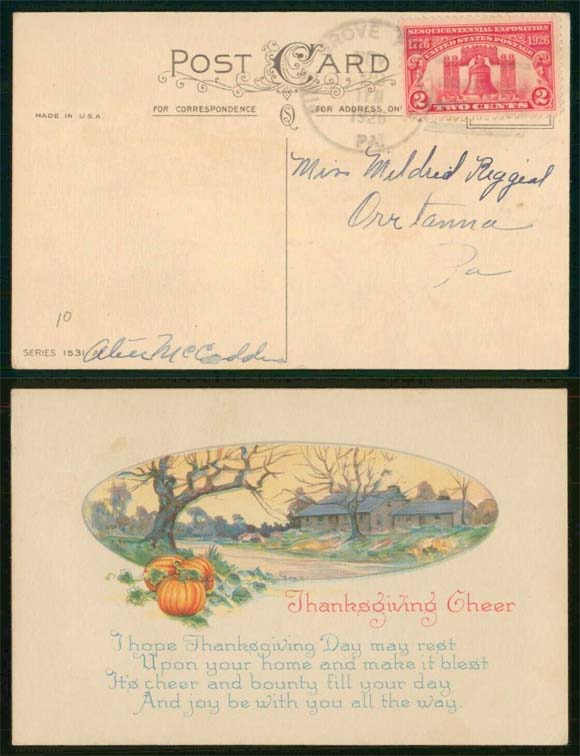 SESQUICENTENNIAL EXPOSITION
1776 UNITED STATES POSTAGE 1926
2 TWO CENTS 2
GROVE
1926
PA.
POST CARD
FOR CORRESPONDENCE
FOR ADDRESS ONL
MADE IN U.S.A.
Miss Mildred
Orrtanna
Pa
10
SERIES 1531
Thanksgiving Cheer
I hope Thanksgiving Day may rest
Upon your home and make it blest
It's cheer and bounty fill your day
And joy be with you all the way.